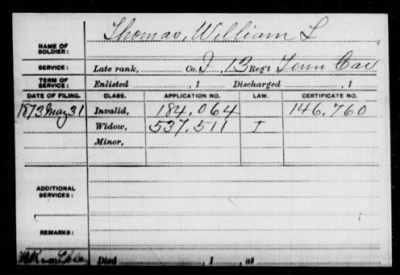 Thomas, William L
NAME OF SOLDIER:
SERVICE: Late rank, Co. I, 13 Reg't Tenn Cav
TERM OF SERVICE: Enlisted , 1 Discharged , 1
DATE OF FILING. CLASS. APPLICATION NO. LAW. CERTIFICATE NO.
1873 May 31 Invalid, 184.064 146.760
Widow, 537.511
Minor,
ADDITIONAL SERVICES:
REMARKS:
Died , 1 , at